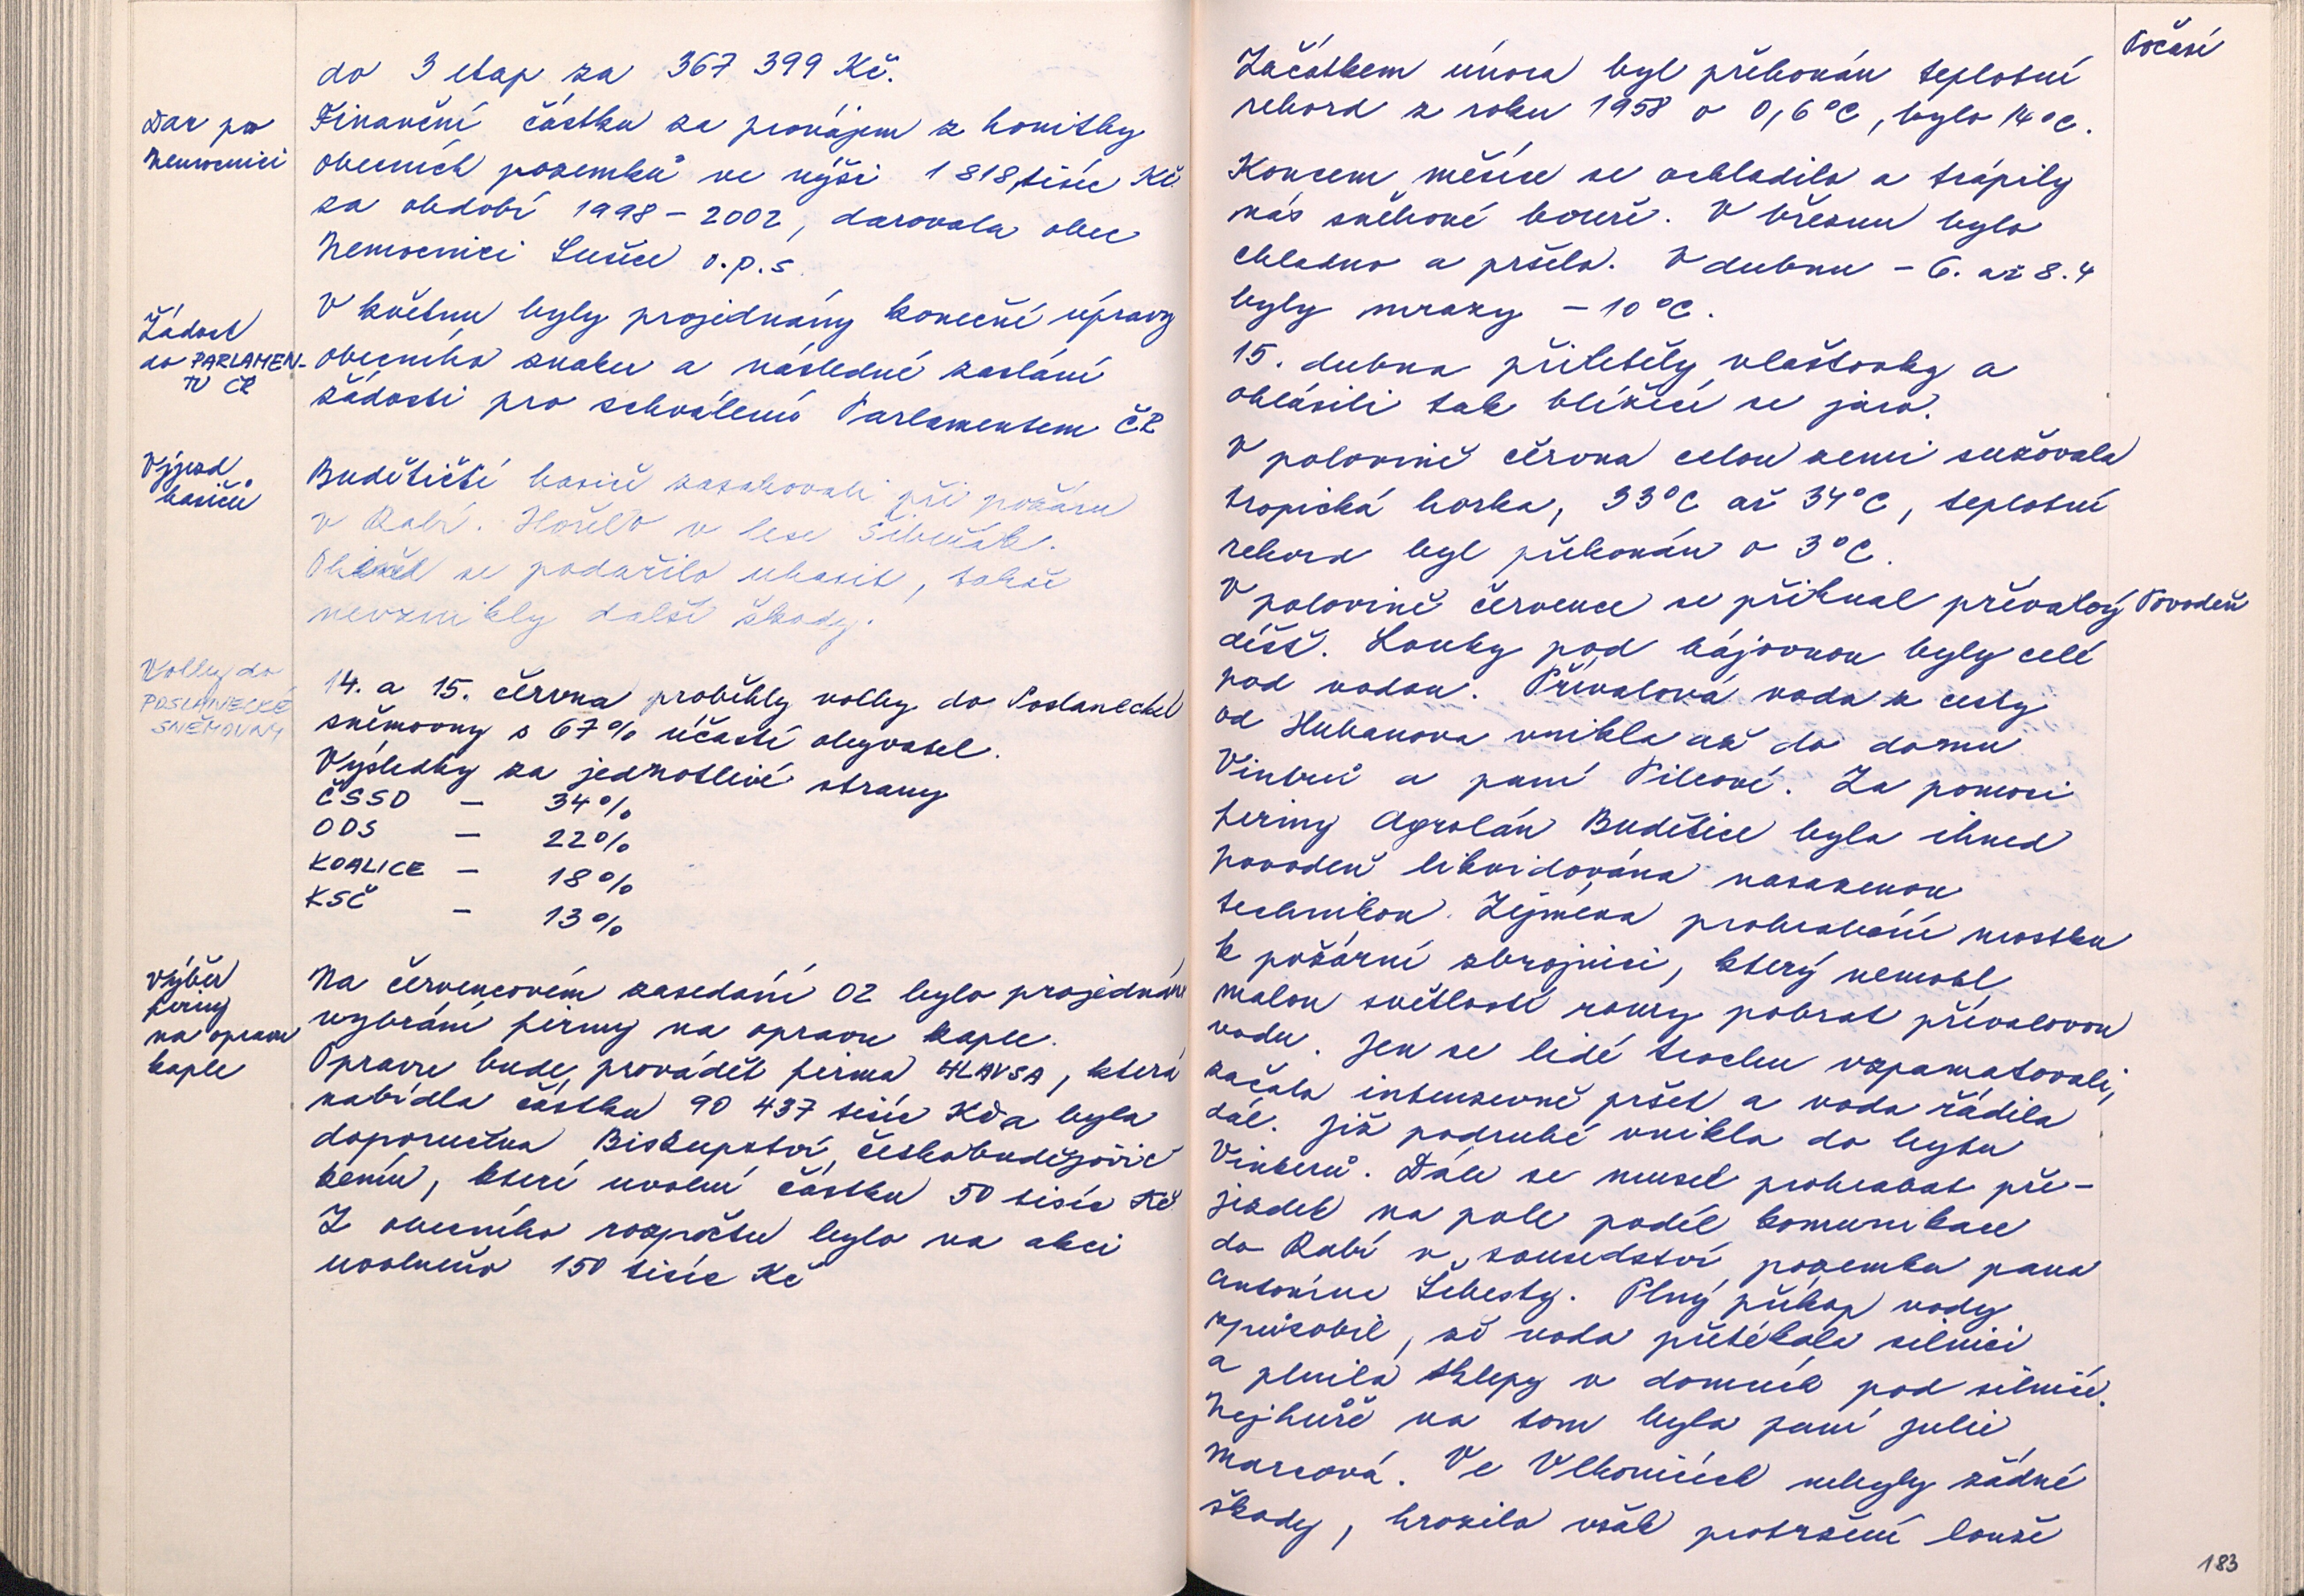 do 3 etap za 367 399 Kč.
Dar pro
nemocnici
Finanční částku za pronájem z honitby
obecních pozemků ve výši 1 818,tisíc Kč
za období 1998 - 2002, darovala obec
Nemocnici Sušice o.p.s.
Žádost
do PARLAMEN-
TU ČR
V květnu byly projednány konečné úpravy
obecního znaku a následné zaslání
žádosti pro schválení Parlamentem ČR
Výjezd
hasičů
Budětičtí hasiči zasahovali při požáru
v Rabí. Hořelo v lese Šibeňák.
Oheň se podařilo uhasit, takže
nevznikly další škody.
Volby do
POSLANECKÉ
SNĚMOVNY
14. a 15. června proběhly volby do Poslanecké
sněmovny s 67% účastí obyvatel.
Výsledky za jednotlivé strany
ČSSD - 34%
ODS - 22%
KOALICE - 18%
KSČ - 13%
Výběr
firmy
na opravu
kaple
Na červencovém zasedání OZ bylo projednáno
vybrání firmy na opravu kaple.
Opravu bude provádět firma HLAVSA, která
nabídla částku 90 437 tisíc Kč a byla
doporučena Biskupství českobudějovic
kém, které uvolní částku 50 tisíc Kč
Z obecního rozpočtu bylo na akci
uvolněno 150 tisíc Kč
Počasí
Začátkem února byl překonán teplotní
rekord z roku 1958 o 0,6°C, bylo 14°C.
Koncem měsíce se ochladilo a trápily
nás sněhové bouře. V březnu bylo
chladno a pršelo. V dubnu - 6. až 8.4
byly mrazy -10°C.
15. dubna přiletěly vlaštovky a
ohlásili tak blížící se jaro.
V polovině června celou zemi sužovala
tropická horka, 33°C až 34°C, teplotní
rekord byl překonán o 3°C.
V polovině července se přihnal přívalový
Povodeň
déšť. Louky pod hájovnou byly celé
pod vodou. Přívalová voda z cesty
od Hubanova vnikla až do domu
Vintrů a paní Pilcové. Za pomoci
firmy Agrolán Budětice byla ihned
povodeň likvidována nasazenou
technikou. Zejména prohrabání mostku
k požární zbrojnici, který nemohl
malou světlostí roury pobrat přívalovou
vodu. Jen se lidé trochu vzpamatovali,
začalo intenzevně pršet a voda řádila
dál. Již podruhé vnikla do bytu
Vinterů. Dále se musel prohrabat pře-
jezdek na pole podél komunikace
do Rabí v sousedství pozemku pana
Antonína Šebesty. Plný příkop vody
způsobil, že voda přetékala silnici
a plnila sklepy v domech pod silnicí.
Nejhůře na tom byla paní Julie
Marcová. Ve Vlkonicích nebyly žádné
škody, hrozilo však protržení louže
183